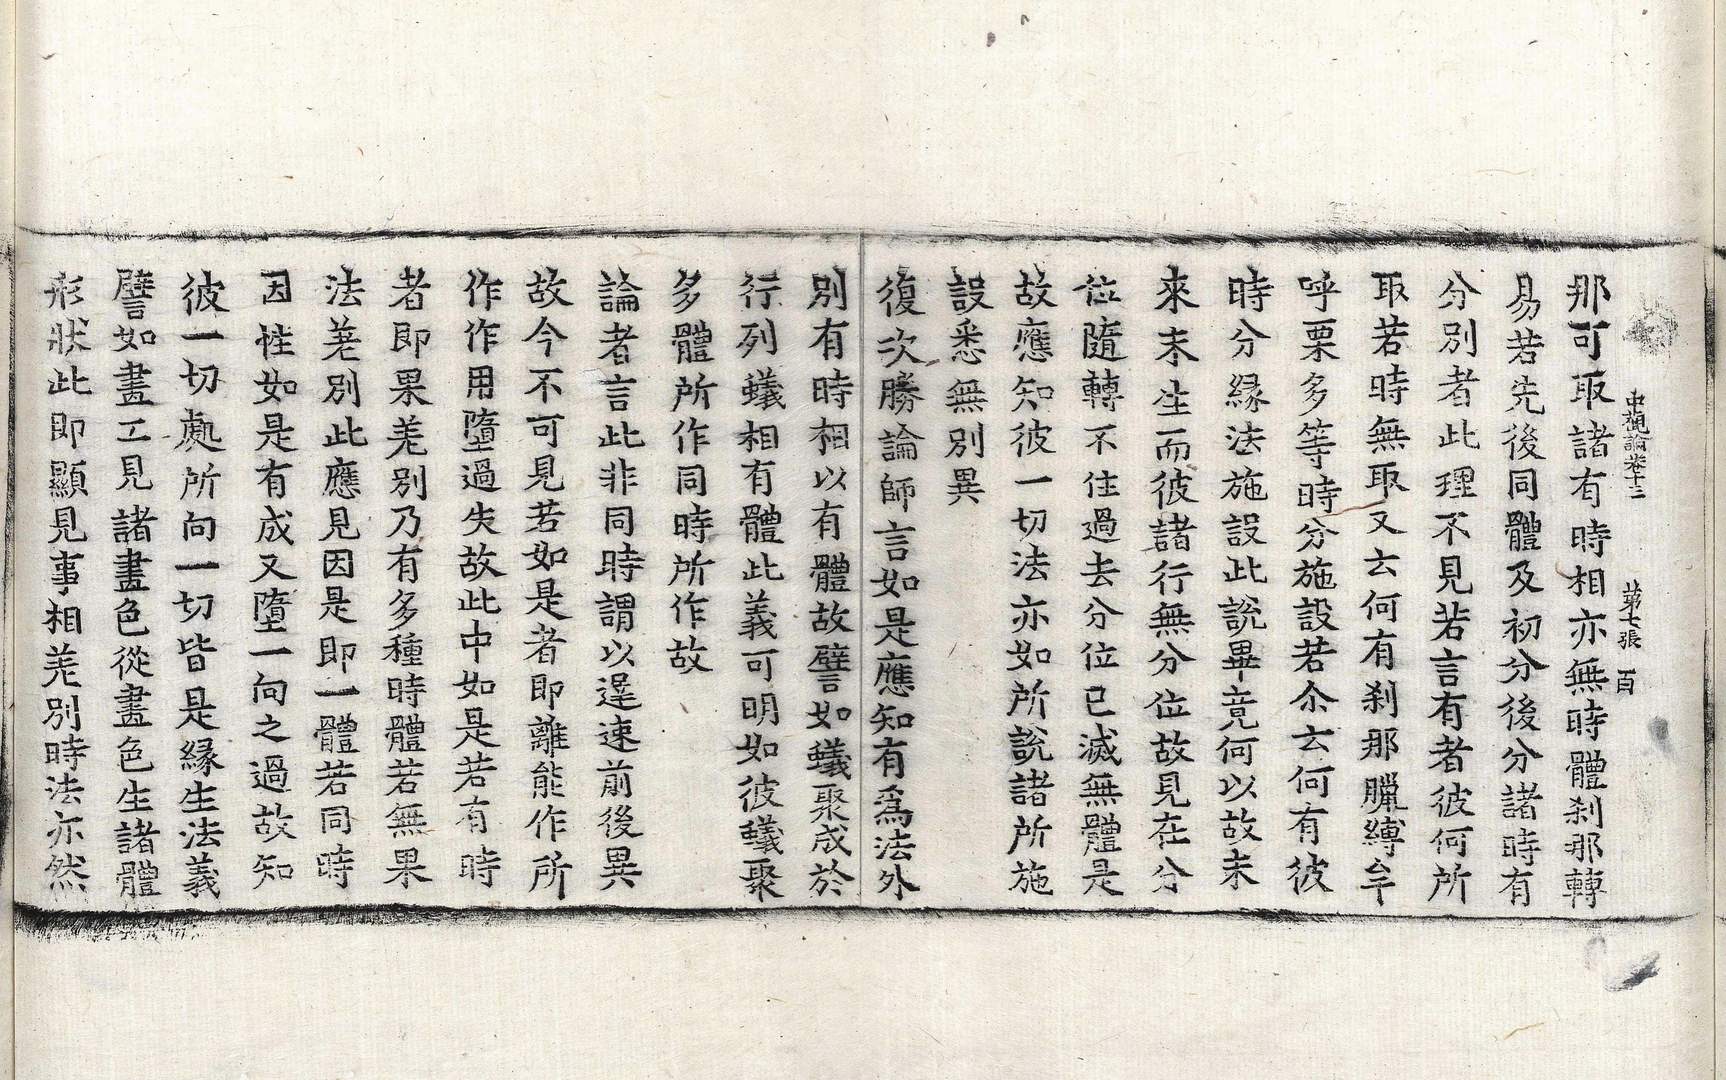 中觀論卷十三　第七張　百
那可取諸有時相亦無時體刹那轉
易若先後同體及初分後分諸時有
分別者此理不見若言有者彼何所
取若時無取又云何有刹那臘縛牟
呼栗多等時分施設若尒云何有彼
時分緣法施設此說畢竟何以故未
來未生而彼諸行無分位故見在分
位隨轉不住過去分位已滅無體是
故應知彼一切法亦如所說諸所施
設悉無別異
復次勝論師言如是應知有爲法外
別有時相以有體故譬如蟻聚成於
行列蟻相有體此義可明如彼蟻聚
多體所作同時所作故
論者言此非同時謂以遅速前後異
故今不可見若如是者即離能作所
作作用墮過失故此中如是若有時
者即果差別乃有多種時體若無果
法差別此應見因是即一體若同時
因性如是有成又墮一向之過故知
彼一切處所向一切皆是緣生法義
譬如畫工見諸畫色從畫色生諸體
形狀此即顯見事相差別時法亦然